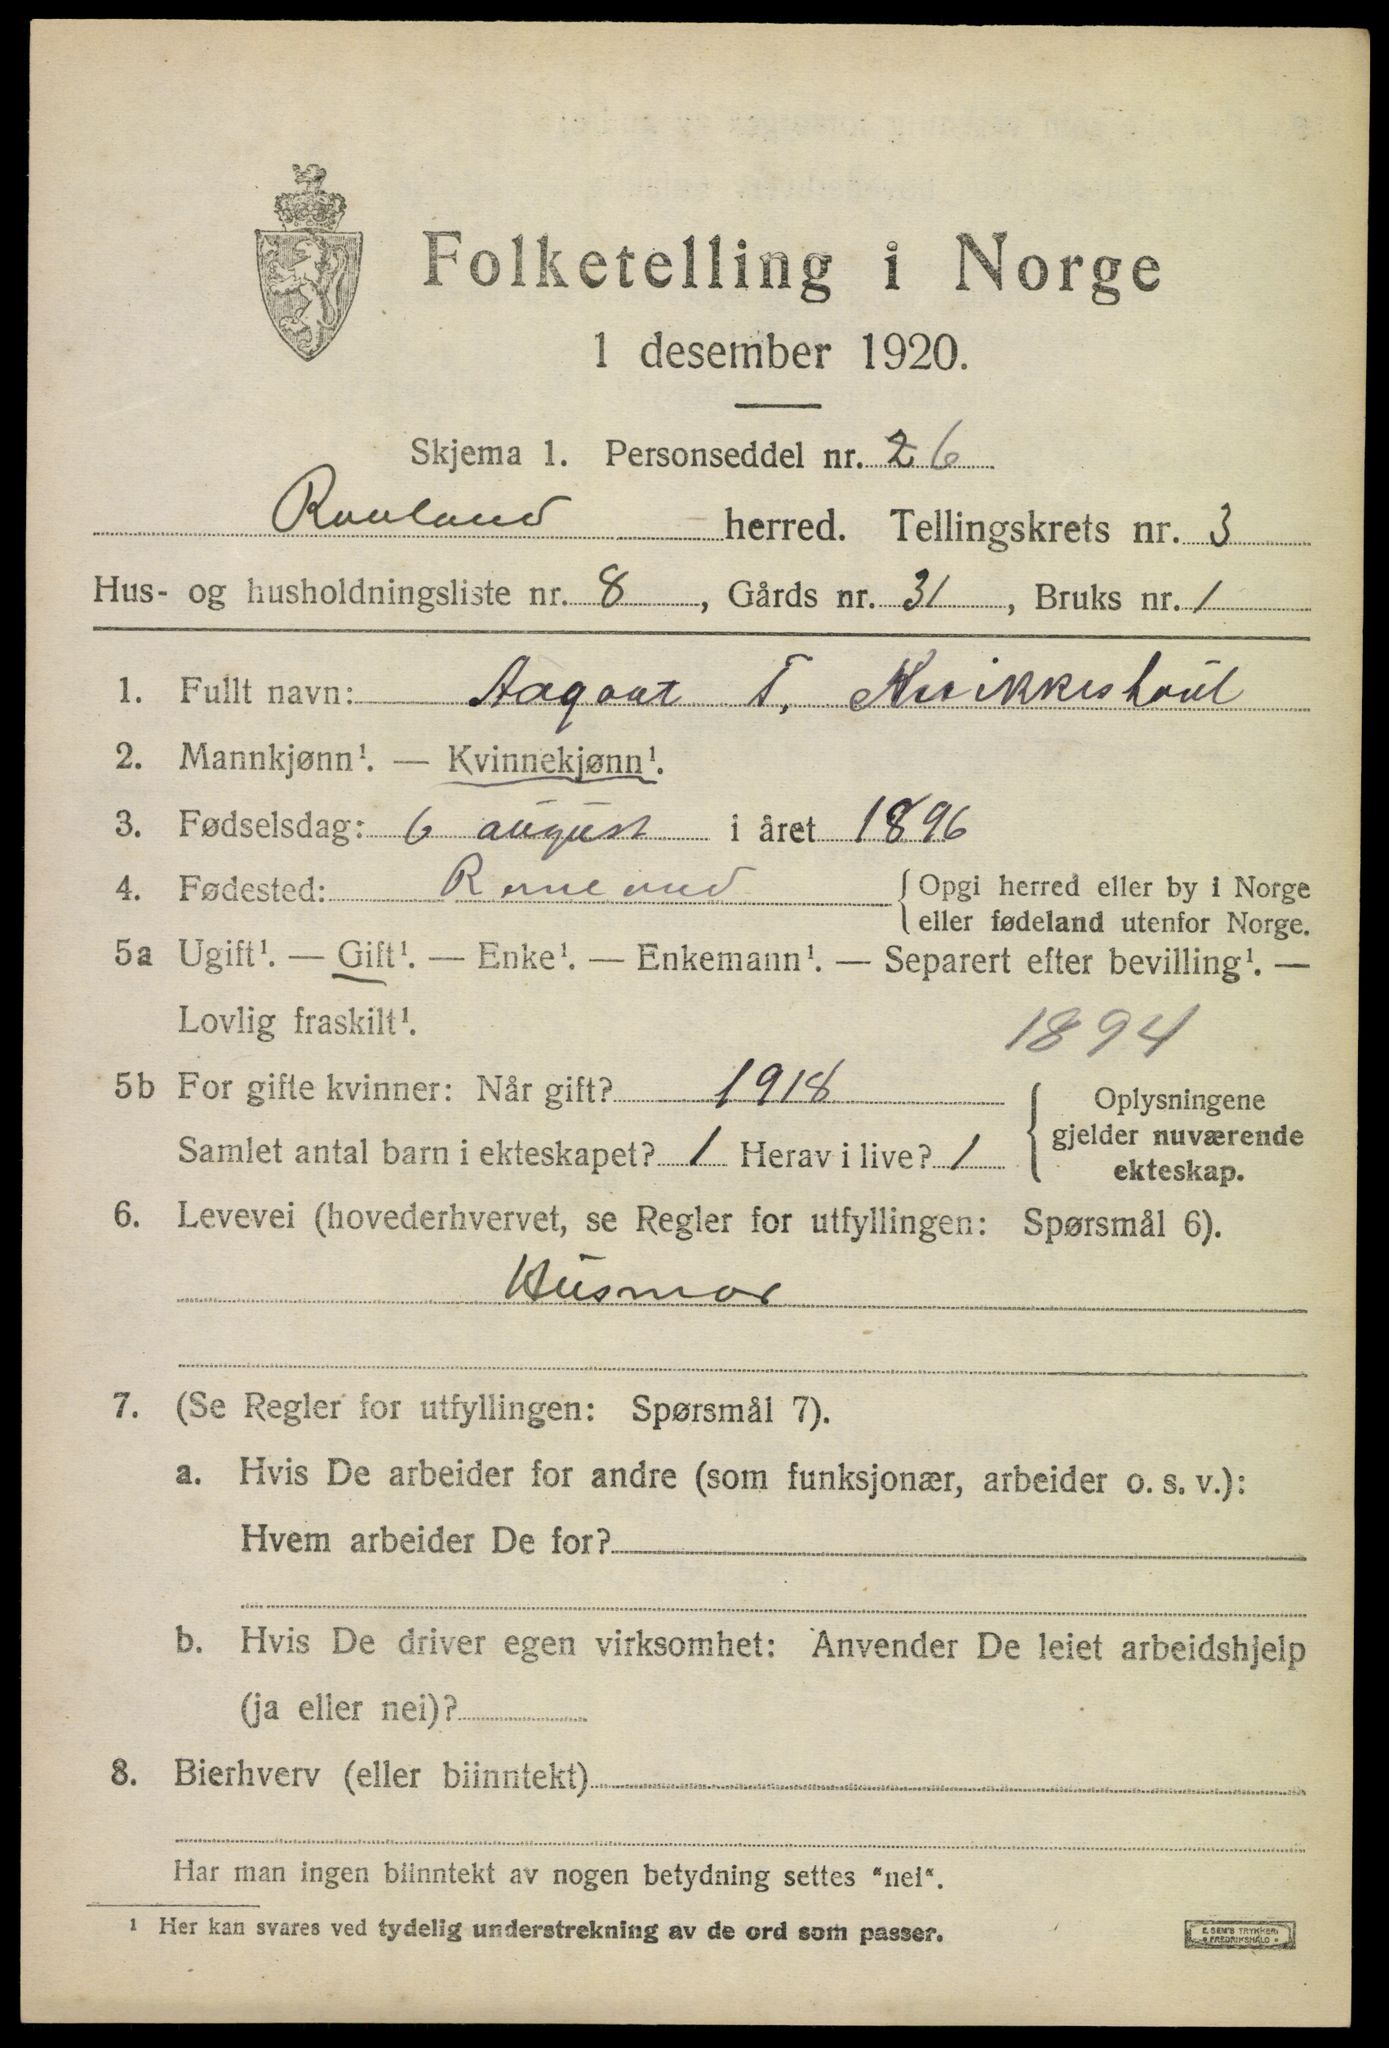 Folketelling i Norge
1 desember 1920.
Skjema 1. Personseddel nr. 26
Rauland herred. Tellingskrets nr. 3
Hus- og husholdningsliste nr. 8, Gårds nr. 31, Bruks nr. 1
1. Fullt navn: Aagaat T. Kvikkeshaul
2. Mannkjønn¹. — Kvinnekjønn¹.
3. Fødselsdag: 6 august i året 1896
4. Fødested: Rauland {Opgi herred eller by i Norge
eller fødeland utenfor Norge.
5a Ugift¹. — Gift¹. — Enke¹. — Enkemann¹. — Separert efter bevilling¹. —
Lovlig fraskilt¹.
1894
5b For gifte kvinner: Når gift? 1918
Samlet antal barn i ekteskapet? 1 Herav i live? 1
{Oplysningene
gjelder nuværende
ekteskap.
6. Levevei (hovederhvervet, se Regler for utfyllingen: Spørsmål 6).
Husmor
7. (Se Regler for utfyllingen: Spørsmål 7).
a. Hvis De arbeider for andre (som funksjonær, arbeider o. s. v.):
Hvem arbeider De for?
b. Hvis De driver egen virksomhet: Anvender De leiet arbeidshjelp
(ja eller nei)?
8. Bierhverv (eller biinntekt)
Har man ingen biinntekt av nogen betydning settes “nei“.
¹ Her kan svares ved tydelig understrekning av de ord som passer.
E. SEM'S TRYKKERI
FREDRIKSHALD